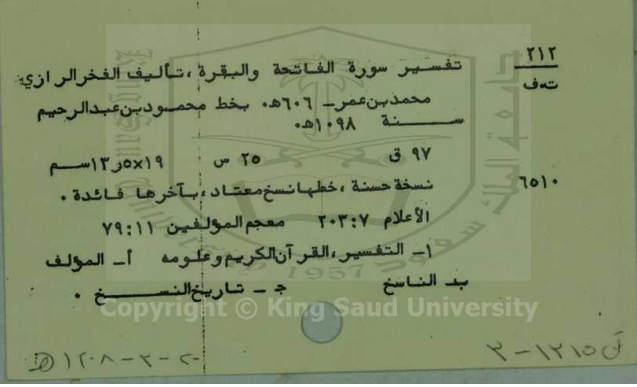 ٢١٢ تفسير سورة الفاتحة والبقرة ، تأليف الفخر الرازي
ت٠ف محمد بن عمر ـ ٦٠٦هـ٠ بخط محمود بن عبدالرحيم
سنة ١٠٩٨هـ٠
٩٧ ق ٢٥ س ١٩×١٣٫٥ سم
٦٥١٠ نسخة حسنة ، خطها نسخ معتاد ، بآخرها فائدة .
الأعلام ٧:٢٠٣ معجم المؤلفين ١١:٧٩
١ـ التفسير ، القرآن الكريم وعلومه أـ المؤلف
بـ الناسخ جـ ـ تاريخ النسخ .
Copyright © King Saud University
جامعة الملك سعود
1957